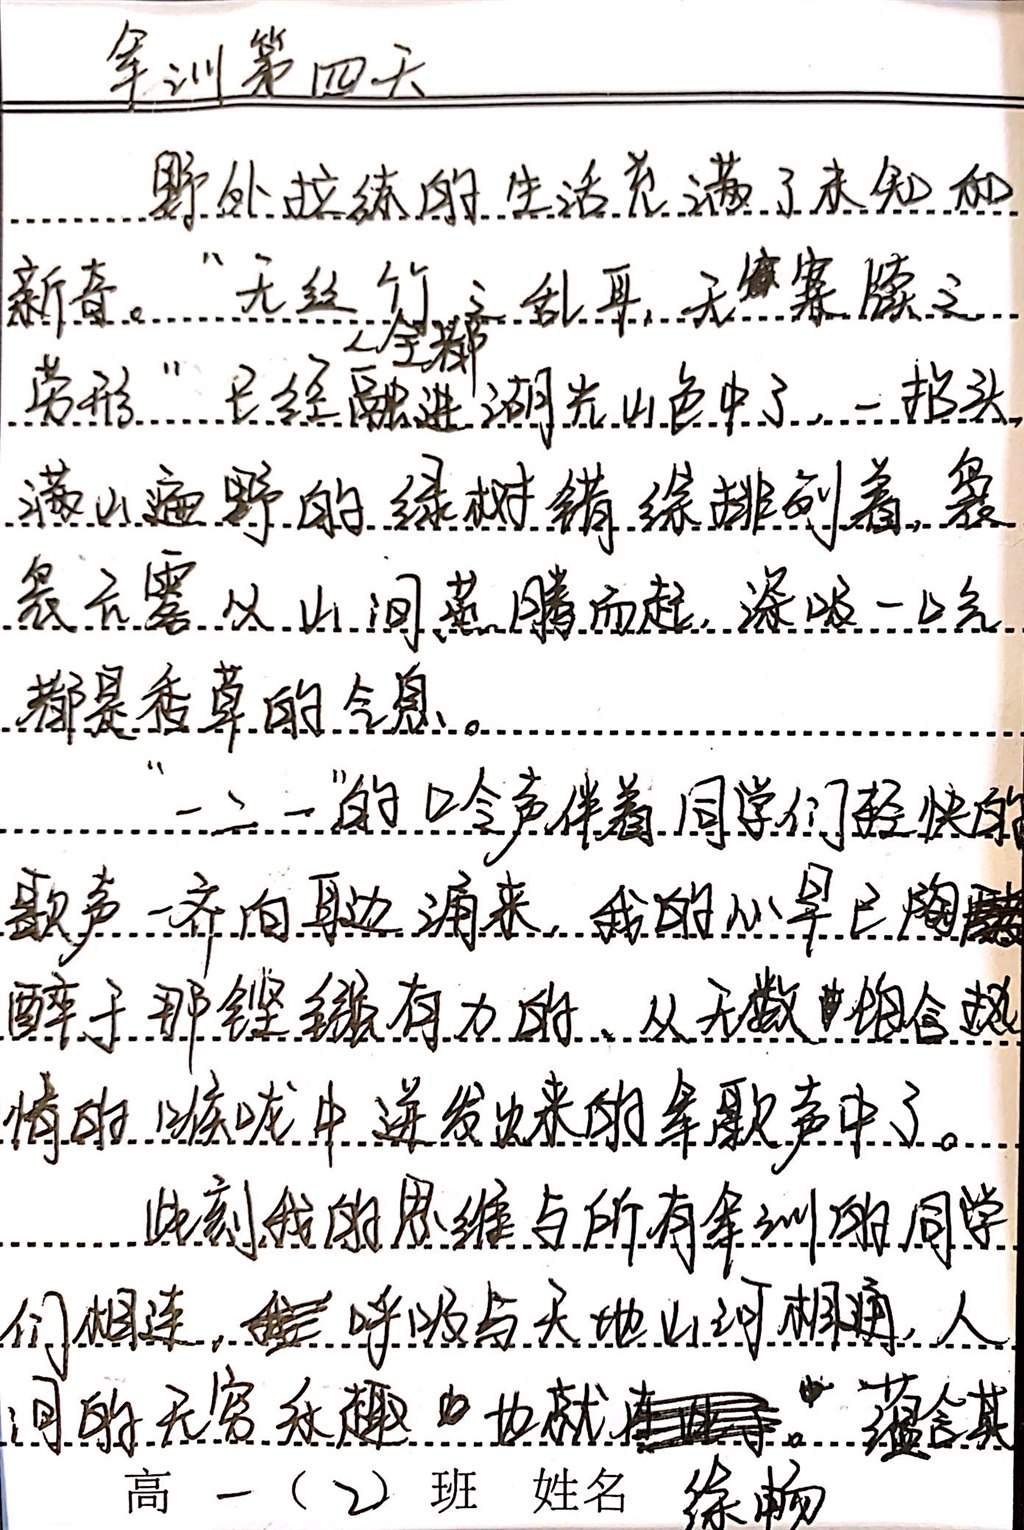 军训第四天
野外拉练的生活充满了未知和
新奇。“无丝竹之乱耳,无案牍之
劳形”已经全都融进湖光山色中了,一抬头,
满山遍野的绿树错综排列着,袅
袅云雾从山间蒸腾而起,深吸一口气
都是香草的气息。
“一二一”的口令声伴着同学们轻快的
歌声一齐向耳边涌来,我的心早已陶
醉于那铿锵有力的、从无数饱含热
情的喉咙中迸发出来的军歌声中了。
此刻我的思维与所有军训的同学
们相连,呼吸与天地山河相通,人
间的无穷秋趣也就。蕴含其
高一(2)班 姓名 徐畅